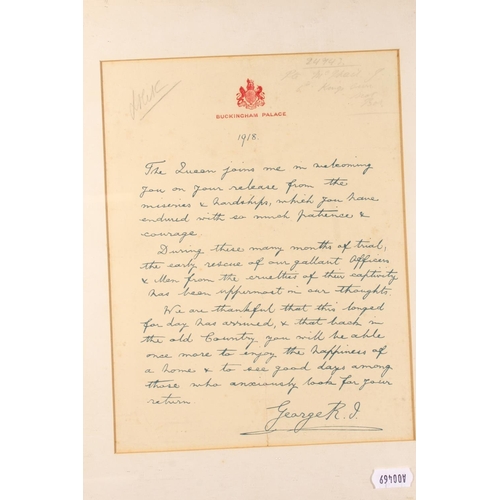 24942
BUCKINGHAM PALACE
1918.
The Queen joins me in welcoming
you on your release from the
miseries & hardships, which you have
endured with so much patience &
courage.
During these many months of trial,
the early rescue of our gallant Officers
& Men from the cruelties of their captivity
has been uppermost in our thoughts.
We are thankful that this longed
for day has arrived, & that back in
the old Country you will be able
once more to enjoy the happiness of
a home & to see good days among
those who anxiously look for your
return.
George R.I.
A00469